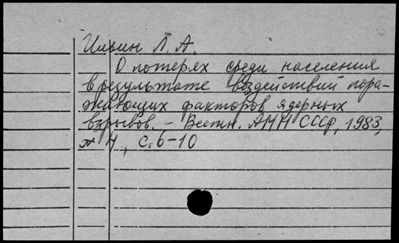 Ильин Л. А.
О потерях среди населения
в результате воздействий пора-
жающих факторов ядерных
взрывов. – Вестн. АМН СССР, 1983,
№ 4, с. 6-10